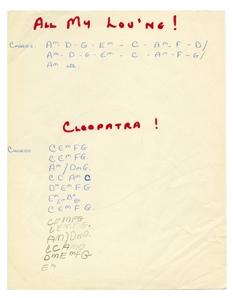 ALL MY LOV'NG!
CHORDS. Am - D - G - Em - C - Am - F - D/
Am - D - G - Em - C - Am - F - G/
Am
CLEOPATRA!
CHORDS C Em F G
C Em F G.
Am / Dm G.
C C Am C
Dm Em F G
C Em F G.
C Em F G
C Em F G.
Am / Dm G.
C C Am
Dm Em F G
Em